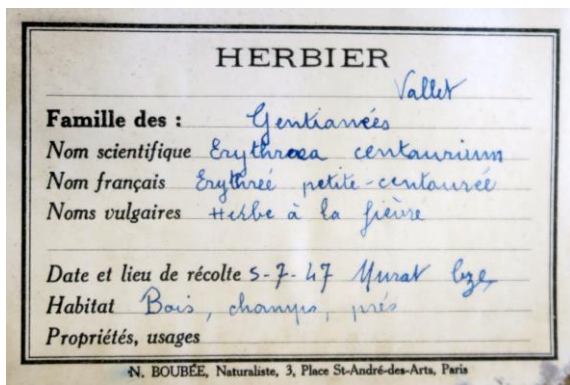 HERBIER
Vallet
Famille des : Gentianées
Nom scientifique Erythraea centaurium
Nom français Erythreé petite-centaureé
Noms vulgaires Herbe à la fièvre
Date et lieu de récolte 5-7-47 Murat
Habitat Bois, champs, prés
Propriétés, usages
N. BOUBÉE, Naturaliste, 3, Place St-André-des-Arts, Paris